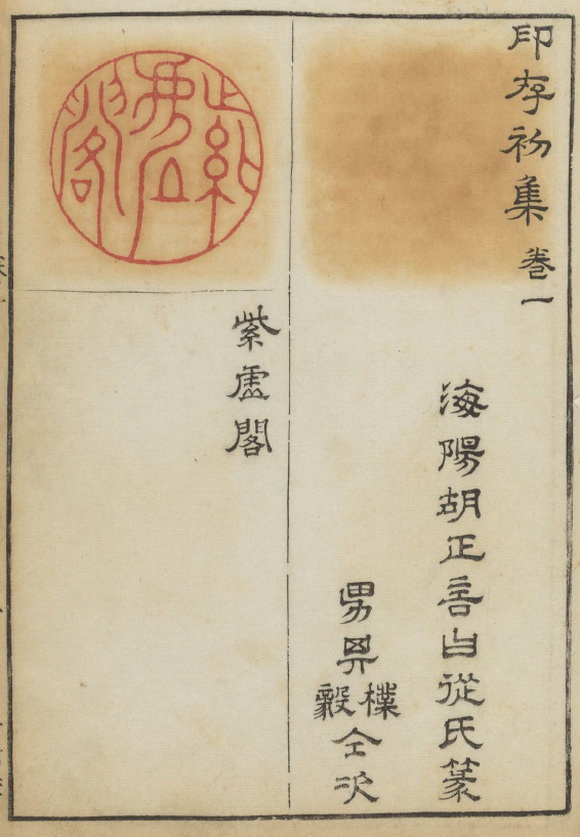 印存初集 卷一
海陽胡正言曰從氏篆
男其樸毅仝次
紫虛閣
紫虛閣